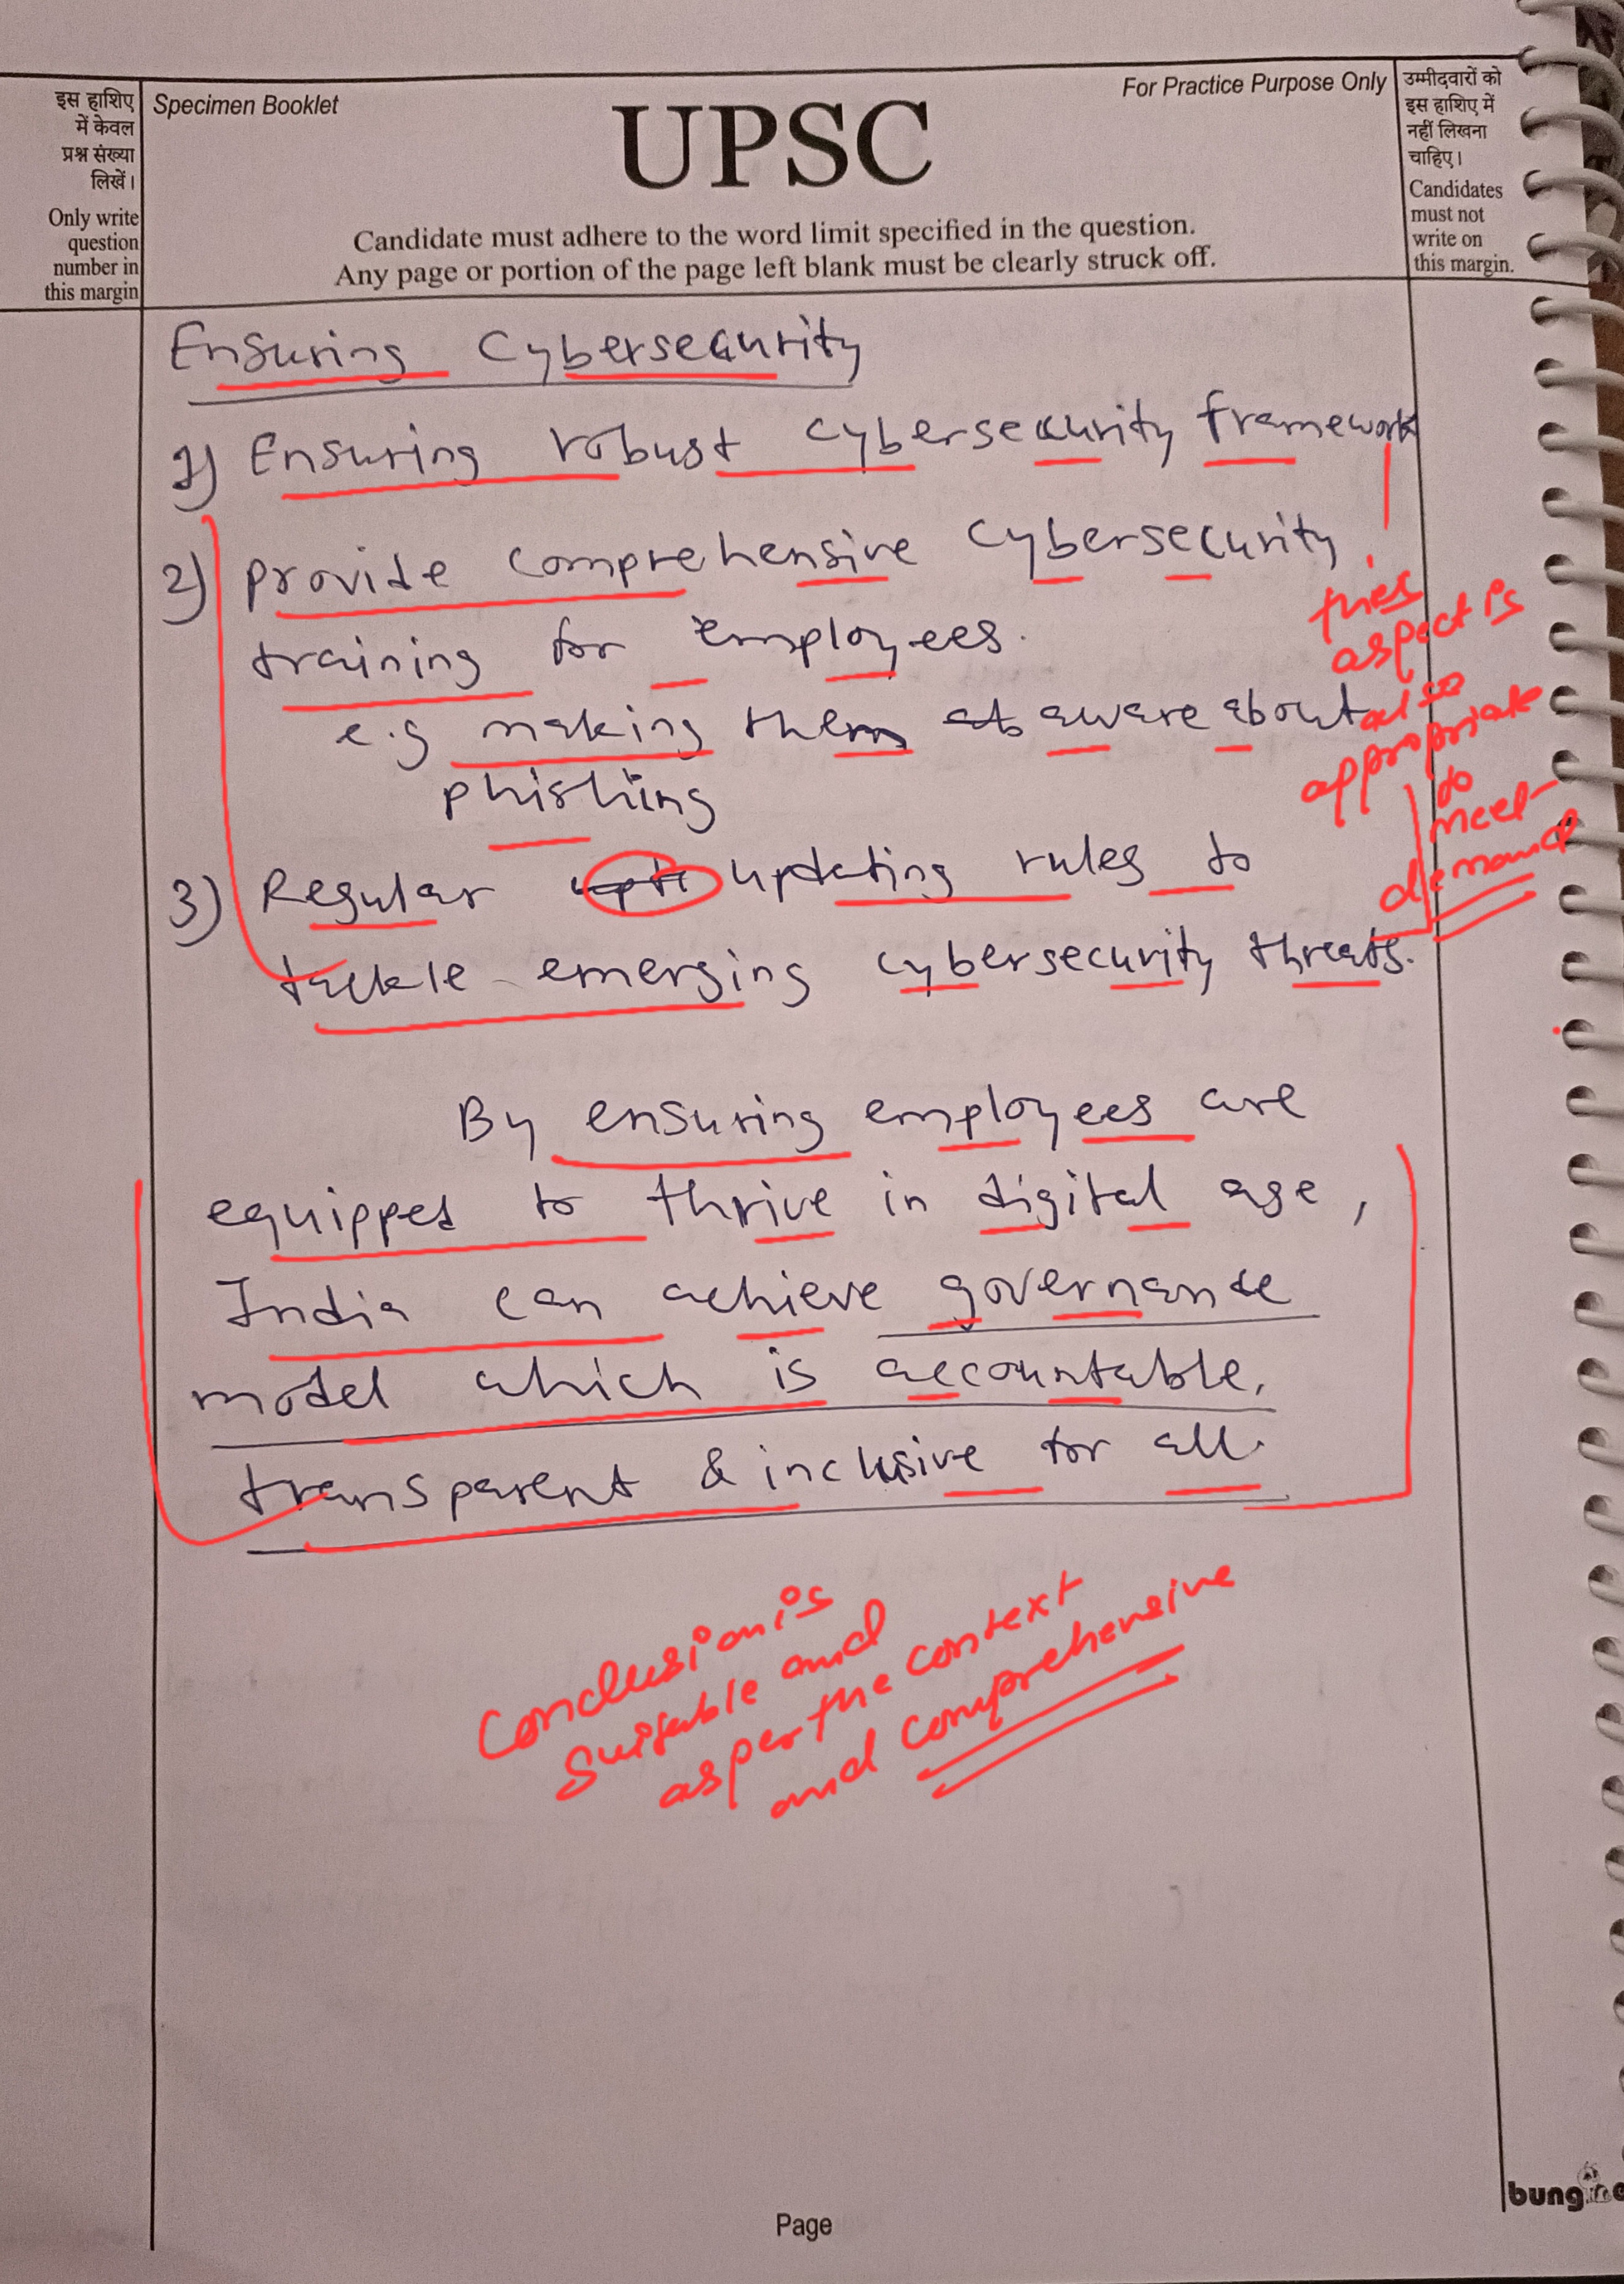 इस हाशिए
में केवल
प्रश्न संख्या
लिखें।
Only write
question
number in
this margin
Specimen Booklet
UPSC
For Practice Purpose Only
Candidate must adhere to the word limit specified in the question.
Any page or portion of the page left blank must be clearly struck off.
उम्मीदवारों को
इस हाशिए में
नहीं लिखना
चाहिए।
Candidates
must not
write on
this margin.
Ensuring Cybersecurity
1) Ensuring robust cybersecurity framework
2) provide comprehensive cybersecurity
training for employees.
e.g making them aware about
phishing
3) Regular updating rules to
tackle emerging cybersecurity threats.
this
aspect is
also
appropriate
to
meet
demand
By ensuring employees are
equipped to thrive in digital age,
India can achieve governance
model which is accountable,
transparent & inclusive for all.
Conclusion is
suitable and
as per the context
and comprehensive
Page